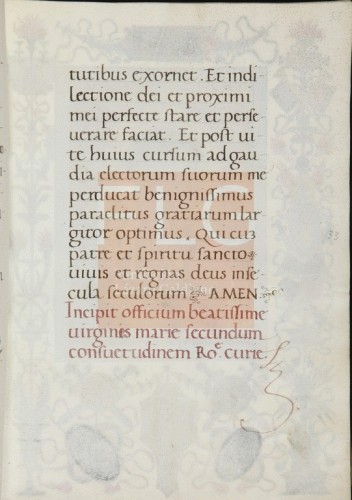 tutibus exornet. Et indi
lectione dei et proximi
mei perfecte stare et perse
uerare faciat. Et post ui
te huius cursum ad gau
dia electorum suorum me
perducat benignissimus
paraclitus gratiarum lar
gitor optimus. Qui cuz
patre et spiritu sancto
uiuis et regnas deus in se
cula seculorum AMEN.
Incipit officium beatissime
uirginis marie secundum
consuetudinem Roe curie.
33